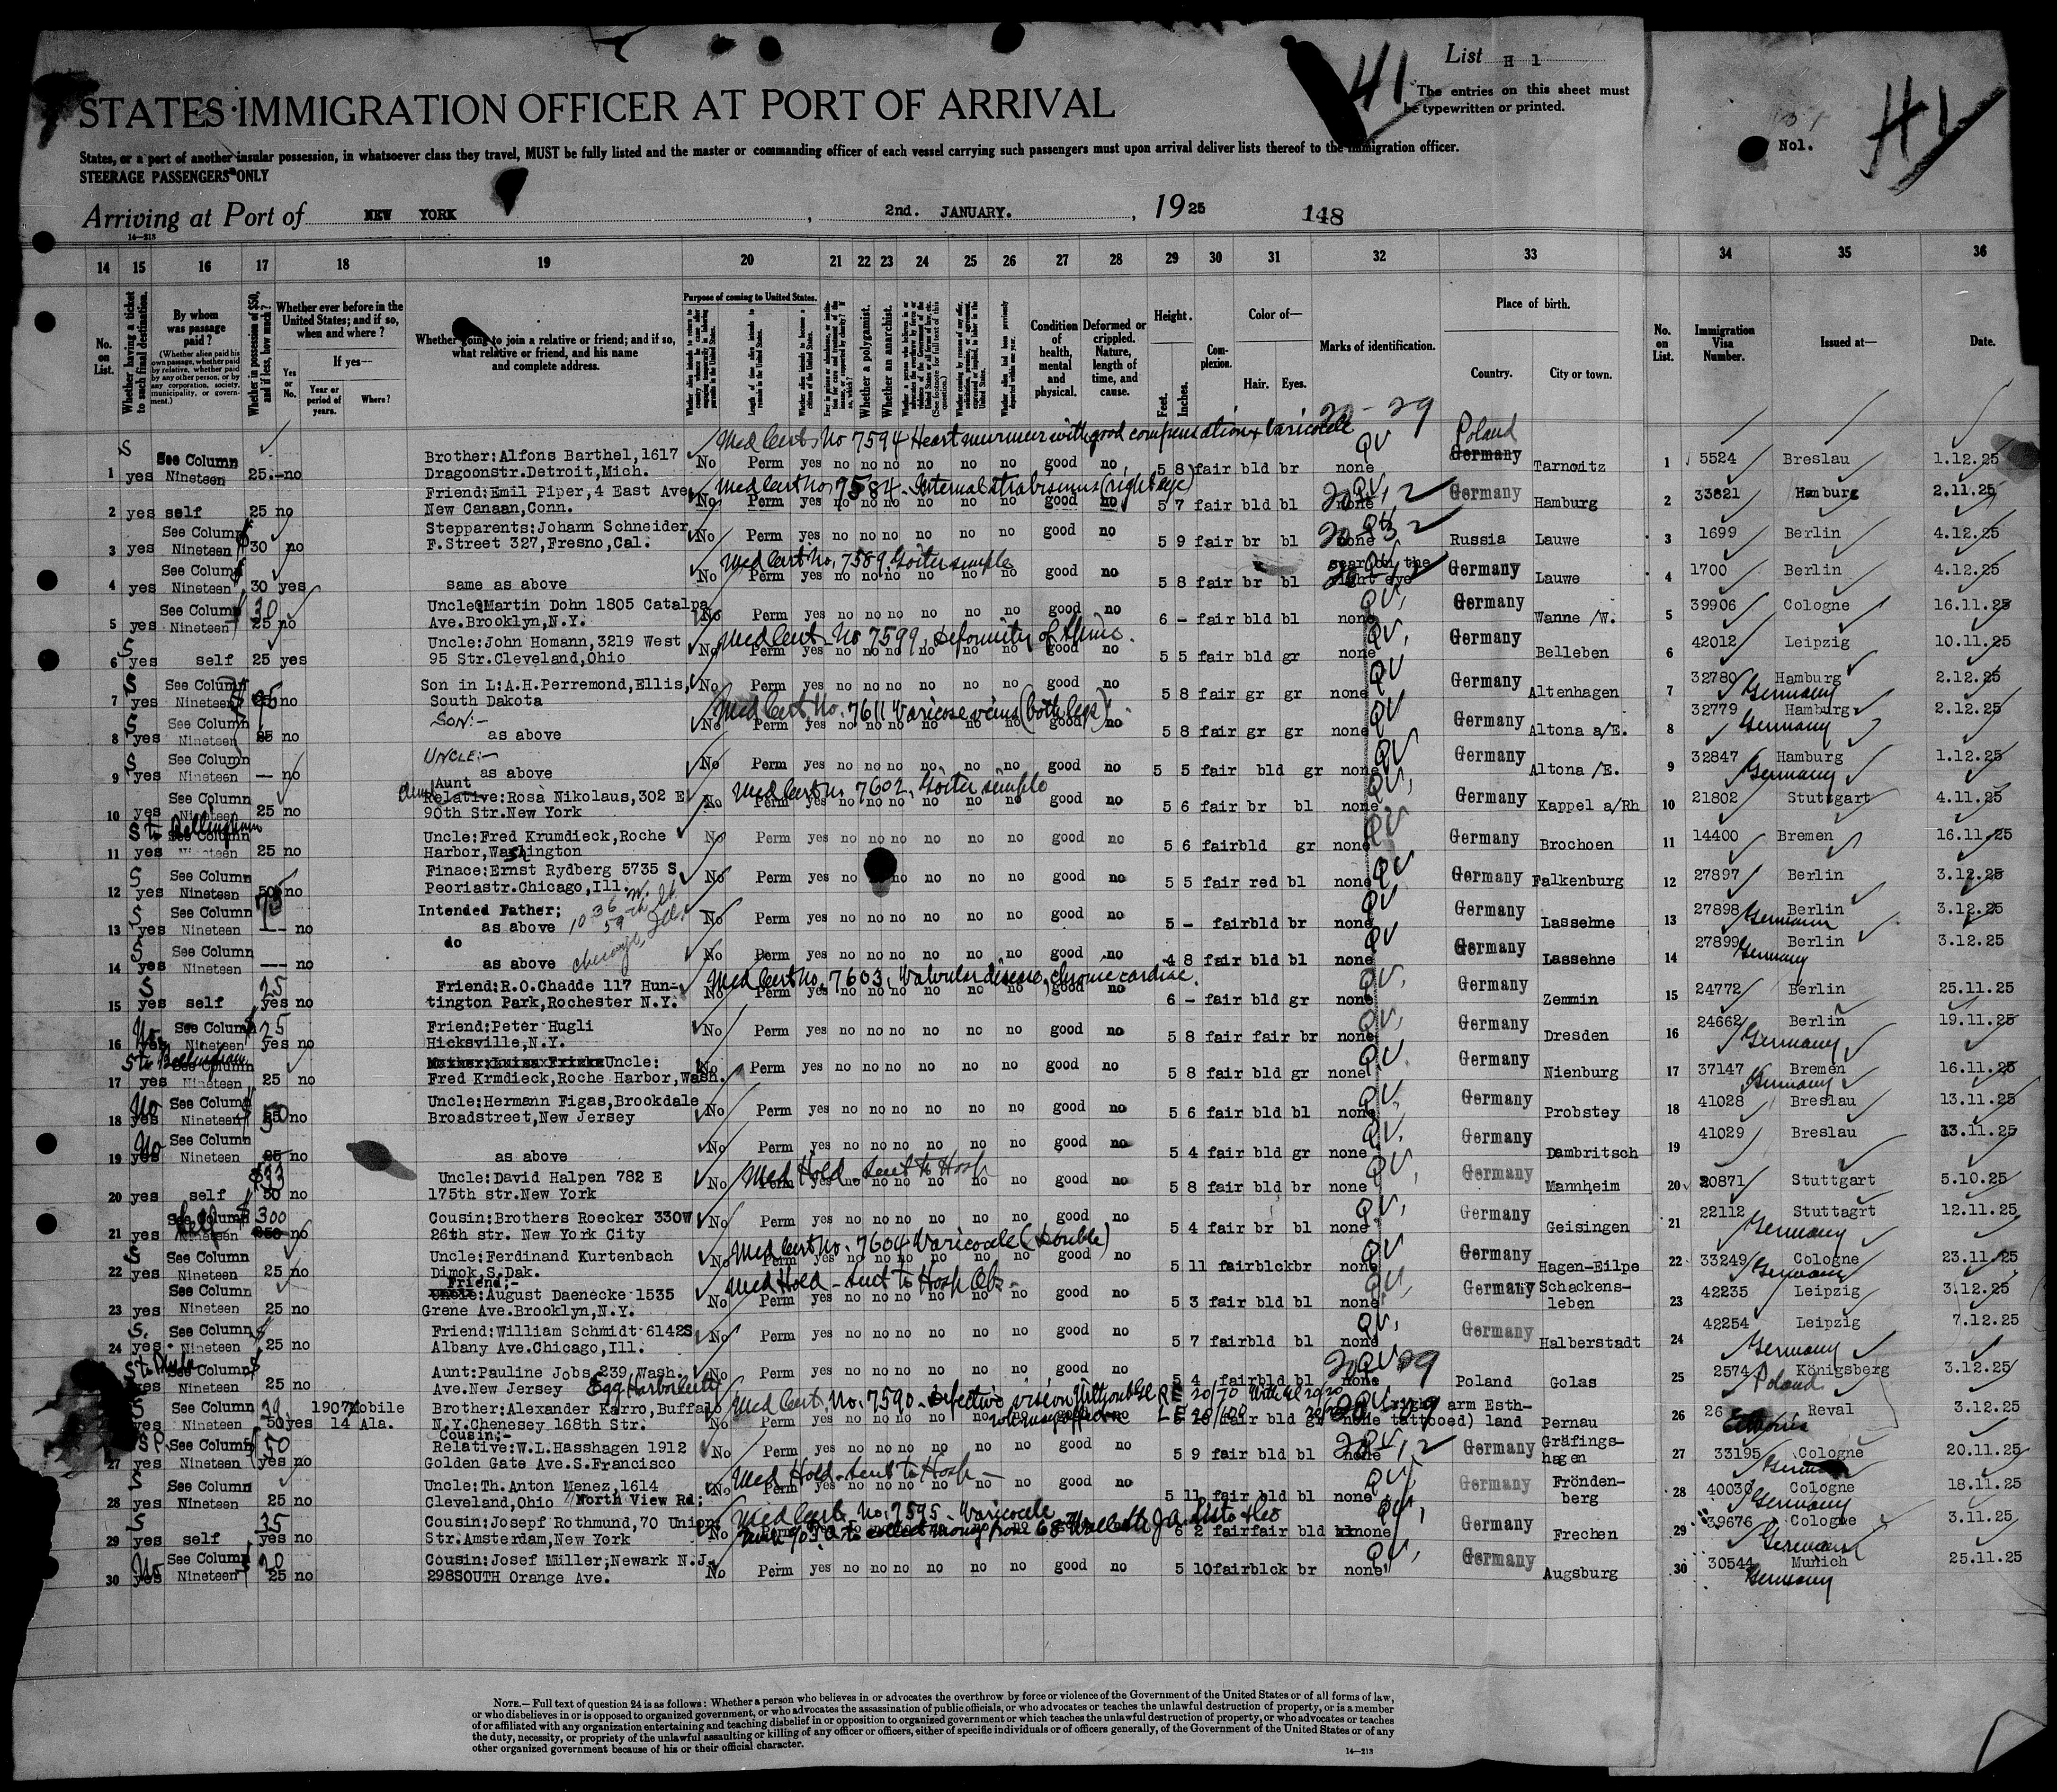 List H 1
41
The entries on this sheet must
be typewritten or printed.
STATES IMMIGRATION OFFICER AT PORT OF ARRIVAL
No1.
H1
States, or a port of another insular possession, in whatsoever class they travel, MUST be fully listed and the master or commanding officer of each vessel carrying such passengers must upon arrival deliver lists thereof to the immigration officer.
STEERAGE PASSENGERS ONLY
Arriving at Port of NEW YORK, 2nd. JANUARY., 1925 148
14—213
14 15 16 17 18 19 20 21 22 23 24 25 26 27 28 29 30 31 32 33 34 35 36
No. on List.
Whether having a ticket to such final destination.
By whom was passage paid?
(Whether alien paid his own passage, whether paid by relative, whether paid by any other person, or by any corporation, society, municipality, or government.)
Whether in possession of $50, and if less, how much?
Whether ever before in the United States; and if so, when and where?
Yes or No.
If yes—
Year or period of years.
Where?
Whether going to join a relative or friend; and if so, what relative or friend, and his name and complete address.
Purpose of coming to United States.
Length of time alien intends to remain in the United States.
Whether a polygamist.
Whether an anarchist.
Condition of health, mental and physical.
Deformed or crippled. Nature, length of time, and cause.
Height.
Feet. Inches.
Complexion.
Color of—
Hair. Eyes.
Marks of identification.
Place of birth.
Country. City or town.
No. on List.
Immigration Visa Number.
Issued at—
Date.
20-29
Med Cert No 7594 Heart murmur with good compensation & Varicocele
S See Column Brother:Alfons Barthel,1617 QV Poland
1 yes Nineteen 25.- no Dragoonstr.Detroit,Mich. No Perm yes no no no no no no good no 5 8 fair bld br none Germany Tarnowitz 1 5524 Breslau 1.12.25
Med Cert No 7584 - Internal strabismus (right eye)
Friend:Emil Piper,4 East Ave
2 yes self 25 no New Canaan,Conn. No Perm yes no no no no no no good no 5 7 fair bld bl none Germany Hamburg 2 33821 Hamburg 2.11.25
See Column Stepparents:Johann Schneider
3 yes Nineteen $30 no F.Street 327,Fresno,Cal. No Perm yes no no no no no no good no 5 9 fair br bl none Russia Lauwe 3 1699 Berlin 4.12.25
Med Cert No. 7589. Goiter simple
See Column scar on the
4 yes Nineteen 30 yes same as above No Perm yes no no no no no no good no 5 8 fair br bl right eye Germany Lauwe 4 1700 Berlin 4.12.25
See Column $30 Uncle:Martin Dohn 1805 Catalpa
5 yes Nineteen 25 no Ave.Brooklyn,N.Y. No Perm yes no no no no no no good no 6 - fair bld bl none Germany Wanne /W. 5 39906 Cologne 16.11.25
Med Cert No 7599, Deformity of spine.
S Uncle:John Homann,3219 West
6 yes self 25 yes 95 Str.Cleveland,Ohio No Perm yes no no no no no no good no 5 5 fair bld gr none Germany Belleben 6 42012 Leipzig 10.11.25
S See Column Son in L:A.H.Perremond,Ellis,
7 yes Nineteen 25 no South Dakota No Perm yes no no no no no no good no 5 8 fair gr gr none Germany Altenhagen 7 32780 Hamburg 2.12.25
Germany
Med Cert No. 7611 Varicose veins (both legs)
S See Column SON:-
8 yes Nineteen 25 no as above No Perm yes no no no no no no good no 5 8 fair gr gr none Germany Altona a/E. 8 32779 Hamburg 2.12.25
Germany
S See Column UNCLE:-
9 yes Nineteen — no as above No Perm yes no no no no no no good no 5 5 fair bld gr none Germany Altona /E. 9 32847 Hamburg 1.12.25
Germany
Aunt
Med Cert No 7602, Goiter simple
See Column Relative:Rosa Nikolaus,302 E
10 yes Nineteen 25 no 90th Str.New York No Perm yes no no no no no no good no 5 6 fair br bl none Germany Kappel a/Rh 10 21802 Stuttgart 4.11.25
S to Bellingham
See Column Uncle:Fred Krumdieck,Roche
11 yes Nineteen 25 no Harbor,Washington No Perm yes no no no no no no good no 5 6 fair bld gr none Germany Brochoen 11 14400 Bremen 16.11.25
S See Column Finace:Ernst Rydberg 5735 S
12 yes Nineteen 50 no Peoriastr.Chicago,Ill. No Perm yes no no no no no good no 5 5 fair red bl none Germany Falkenburg 12 27897 Berlin 3.12.25
75 1036 W. 59th St Chicago, Ill.
S See Column Intended Father;
13 yes Nineteen — no as above No Perm yes no no no no no no good no 5 - fair bld br none Germany Lassehne 13 27898 Berlin 3.12.25
Germany
S See Column do
14 yes Nineteen --- no as above No Perm yes no no no no no no good no 4 8 fair bld bl none Germany Lassehne 14 27899 Berlin 3.12.25
Germany
Med Cert No. 7603, Valvular disease, chronic cardiac.
S 25 Friend:R.O.Chadde 117 Hun-
15 yes self yes no tington Park,Rochester N.Y. No Perm yes no no no no no no good no 6 - fair bld gr none Germany Zemmin 15 24772 Berlin 25.11.25
No See Column $25 Friend:Peter Hugli
16 yes Nineteen yes no Hicksville,N.Y. No Perm yes no no no no no no good no 5 8 fair fair br none Germany Dresden 16 24662 Berlin 19.11.25
Germany
S to Bellingham
See Column Uncle:
17 yes Nineteen 25 no Fred Krmdieck,Roche Harbor,Wash. No Perm yes no no no no no no good no 5 8 fair bld gr none Germany Nienburg 17 37147 Bremen 16.11.25
Germany
No See Column $50 Uncle:Hermann Figas,Brookdale
18 yes Nineteen 25 no Broadstreet,New Jersey No Perm yes no no no no no no good no 5 6 fair bld bl none Germany Probstey 18 41028 Breslau 13.11.25
No See Column
19 yes Nineteen 25 no as above No Perm yes no no no no no no good no 5 4 fair bld gr none Germany Dambritsch 19 41029 Breslau 13.11.25
Med Hold - sent to Hosp
$33 Uncle:David Halpen 782 E
20 yes self 30 no 175th str.New York No Perm yes no no no no no no good no 5 8 fair bld br none Germany Mannheim 20 20871 Stuttgart 5.10.25
See Column $300 Cousin:Brothers Roecker 330W
self
21 yes Nineteen no 26th str. New York City No Perm yes no no no no no no good no 5 4 fair br bl none Germany Geisingen 21 22112 Stuttagrt 12.11.25
Germany
Med Cert No. 7604 Varicocele (Double)
S See Column Uncle:Ferdinand Kurtenbach
22 yes Nineteen 25 no Dimok,S.Dak. No Perm yes no no no no no no good no 5 11 fair blck br none Germany Hagen-Eilpe 22 33249 Cologne 23.11.25
Germany
Friend:-
Med Hold - sent to Hosp Obs -
See Column Uncle:August Daenecke 1535 Schackens-
23 yes Nineteen 25 no Grene Ave.Brooklyn,N.Y. No Perm yes no no no no no no good no 5 3 fair bld bl none Germany leben 23 42235 Leipzig 3.12.25
S. See Column Friend:William Schmidt 6142S
24 yes Nineteen 25 no Albany Ave.Chicago,Ill. No Perm yes no no no no no no good no 5 7 fair bld bl none Germany Halberstadt 24 42254 Leipzig 7.12.25
Germany
See Column Aunt:Pauline Jobs,239,Wash. 29
yes Nineteen 25 no Ave.New Jersey Egg Harbor City No Perm yes no no no no no no good no 5 4 fair bld bl none Poland Golas 25 2574 Königsberg 3.12.25
Poland
Med Cert. No. 7590 - Defective vision Without Gl R E 20/70 With Gl 20/20
L E 20/100
See Column 1907 Mobile Brother:Alexander Karro,Buffalo right arm Esth-
yes Nineteen 50 yes 14 Ala. N.Y.Chenesey 168th Str. No Perm yes no no no no no no good no fair bld gr tattooed) land Pernau 26 26 Reval 3.12.25
Cousin;-
See Column $50 Relative:W.L.Hasshagen 1912 Gräfings-
27 yes Nineteen yes no Golden Gate Ave.S.Francisco No Perm yes no no no no no no good no 5 9 fair bld bl none Germany hagen 27 33195 Cologne 20.11.25
Med Hold - sent to Hosp -
S See Column Uncle:Th.Anton Menez,1614 Frönden-
28 yes Nineteen 25 no Cleveland,Ohio North View Rd; No Perm yes no no no no no no good no 5 11 fair bld bl none Germany berg 28 40030 Cologne 18.11.25
Germany
Med Cert. No. 7595 - Varicocele
S 35 Cousin:Josepf Rothmund,70 Union
29 yes self yes no Str.Amsterdam,New York No 6 2 fair fair bld none Germany Frechen 29 39676 Cologne 3.11.25
Germany
No See Column $20 Cousin:Josef Müller;Newark N.J.
30 yes Nineteen 25 no 298SOUTH Orange Ave. No Perm yes no no no no no no good no 5 10 fair blck br none Germany Augsburg 30 30544 Munich 25.11.25
Germany
NOTE.—Full text of question 24 is as follows: Whether a person who believes in or advocates the overthrow by force or violence of the Government of the United States or of all forms of law,
or who disbelieves in or is opposed to organized government, or who advocates the assassination of public officials, or who advocates or teaches the unlawful destruction of property, or is a member
of or affiliated with any organization entertaining and teaching disbelief in or opposition to organized government or which teaches the unlawful destruction of property, or who advocates or teaches
the duty, necessity, or propriety of the unlawful assaulting or killing of any officer or officers, either of specific individuals or of officers generally, of the Government of the United States or of any
other organized government because of his or their official character.
14—213